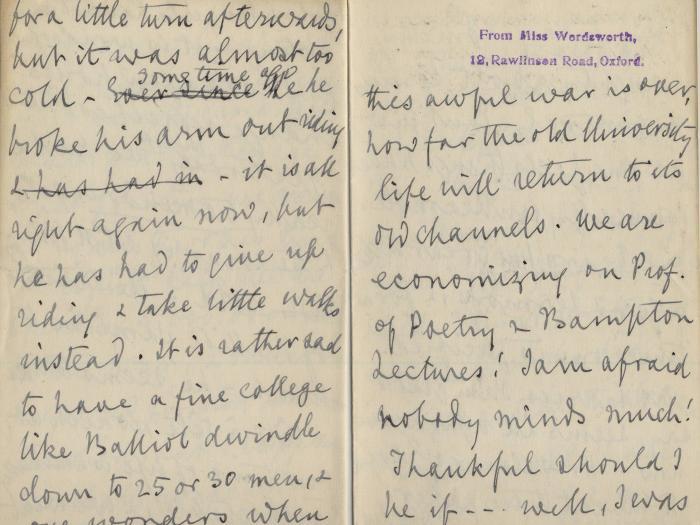 for a little turn afterwards,
but it was almost too
some time ago
cold - Ever since he he
broke his arm out riding
& has had in - it is all
right again now, but
he has had to give up
riding & take little walks
instead. It is rather sad
to have a fine college
like Balliol dwindle
down to 25 or 30 men, &
one wonders when
From Miss Wordsworth,
12, Rawlinson Road, Oxford.
this awful war is over,
how far the old University
life will return to its
old channels. We are
economizing on Prof.
of Poetry & Bampton
Lectures! I am afraid
nobody minds much!
Thankful should I
be if --- well, I was